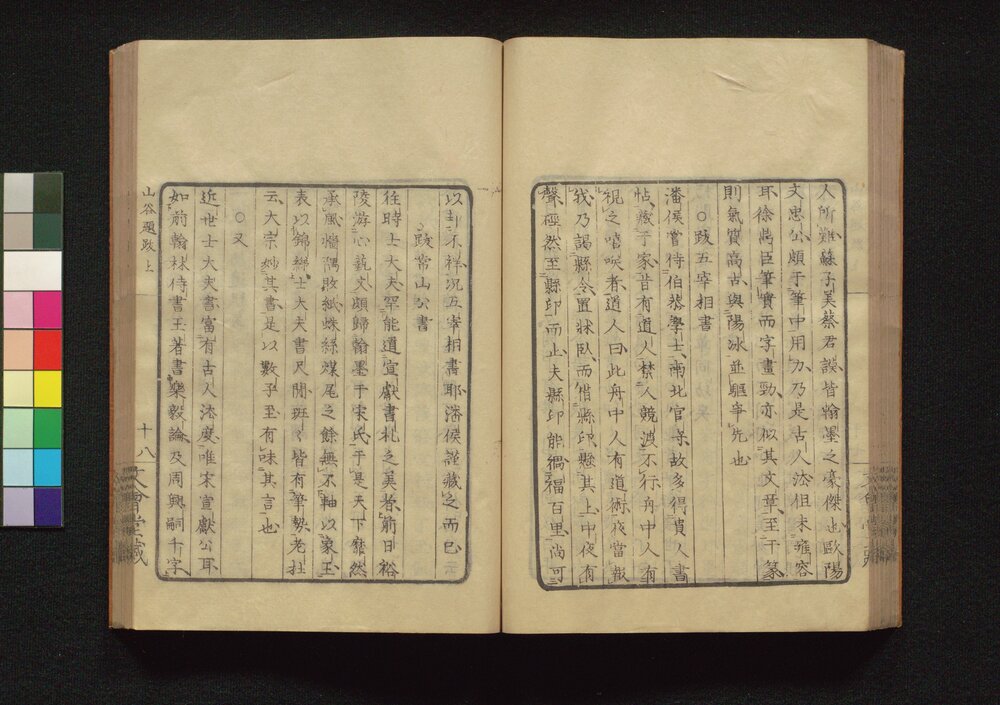 人所難蘇子美蔡君謨皆翰墨之豪傑也歐陽
文忠公頗于筆中用力乃是古人法但未雍容
耳徐鼎臣筆實而字畫勁亦似其文章至于篆
則氣質高古與陽冰並驅爭先也
○跋五宰相書
潘侯嘗待伯恭學士兩北官守故多得貴人書
帖藏于家昔有道人禁人競渡不行舟中人有
視之嘻唉者道人曰此舟中人有道術夜當報
我乃謁縣令置牀臥而借縣印懸其上中夜有
聲硜然至縣印而止夫縣印能禍福百里尚可
以不祥況五宰相書耶潘侯謹藏之而已
跋常山公書
往時士大夫罕能道宣獻書札之美者前日裕
陵游心藝文頗歸翰墨于宋氏于是天下靡然
承風牆隅敗紙蛛絲煤尾之餘無不軸以象玉
表以錦綈士大夫書尺閒斑斑皆有筆勢老杜
云大宗妙其書是以數子至有味其言也
○又
近世士大夫書富有古人法度唯宋宣獻公耳
如前翰林侍書王著書樂毅論及周興嗣千字
山谷題跋上
十八
文會堂藏